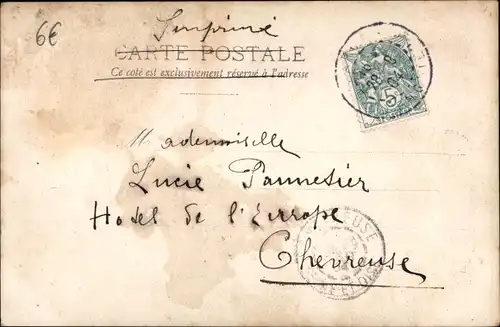 6€
Imprimé
CARTE POSTALE
Ce côté est exclusivement réservé à l'adresse
5
Mademoiselle
Lucie Pannetier
Hotel de l'Europe
Chevreuse